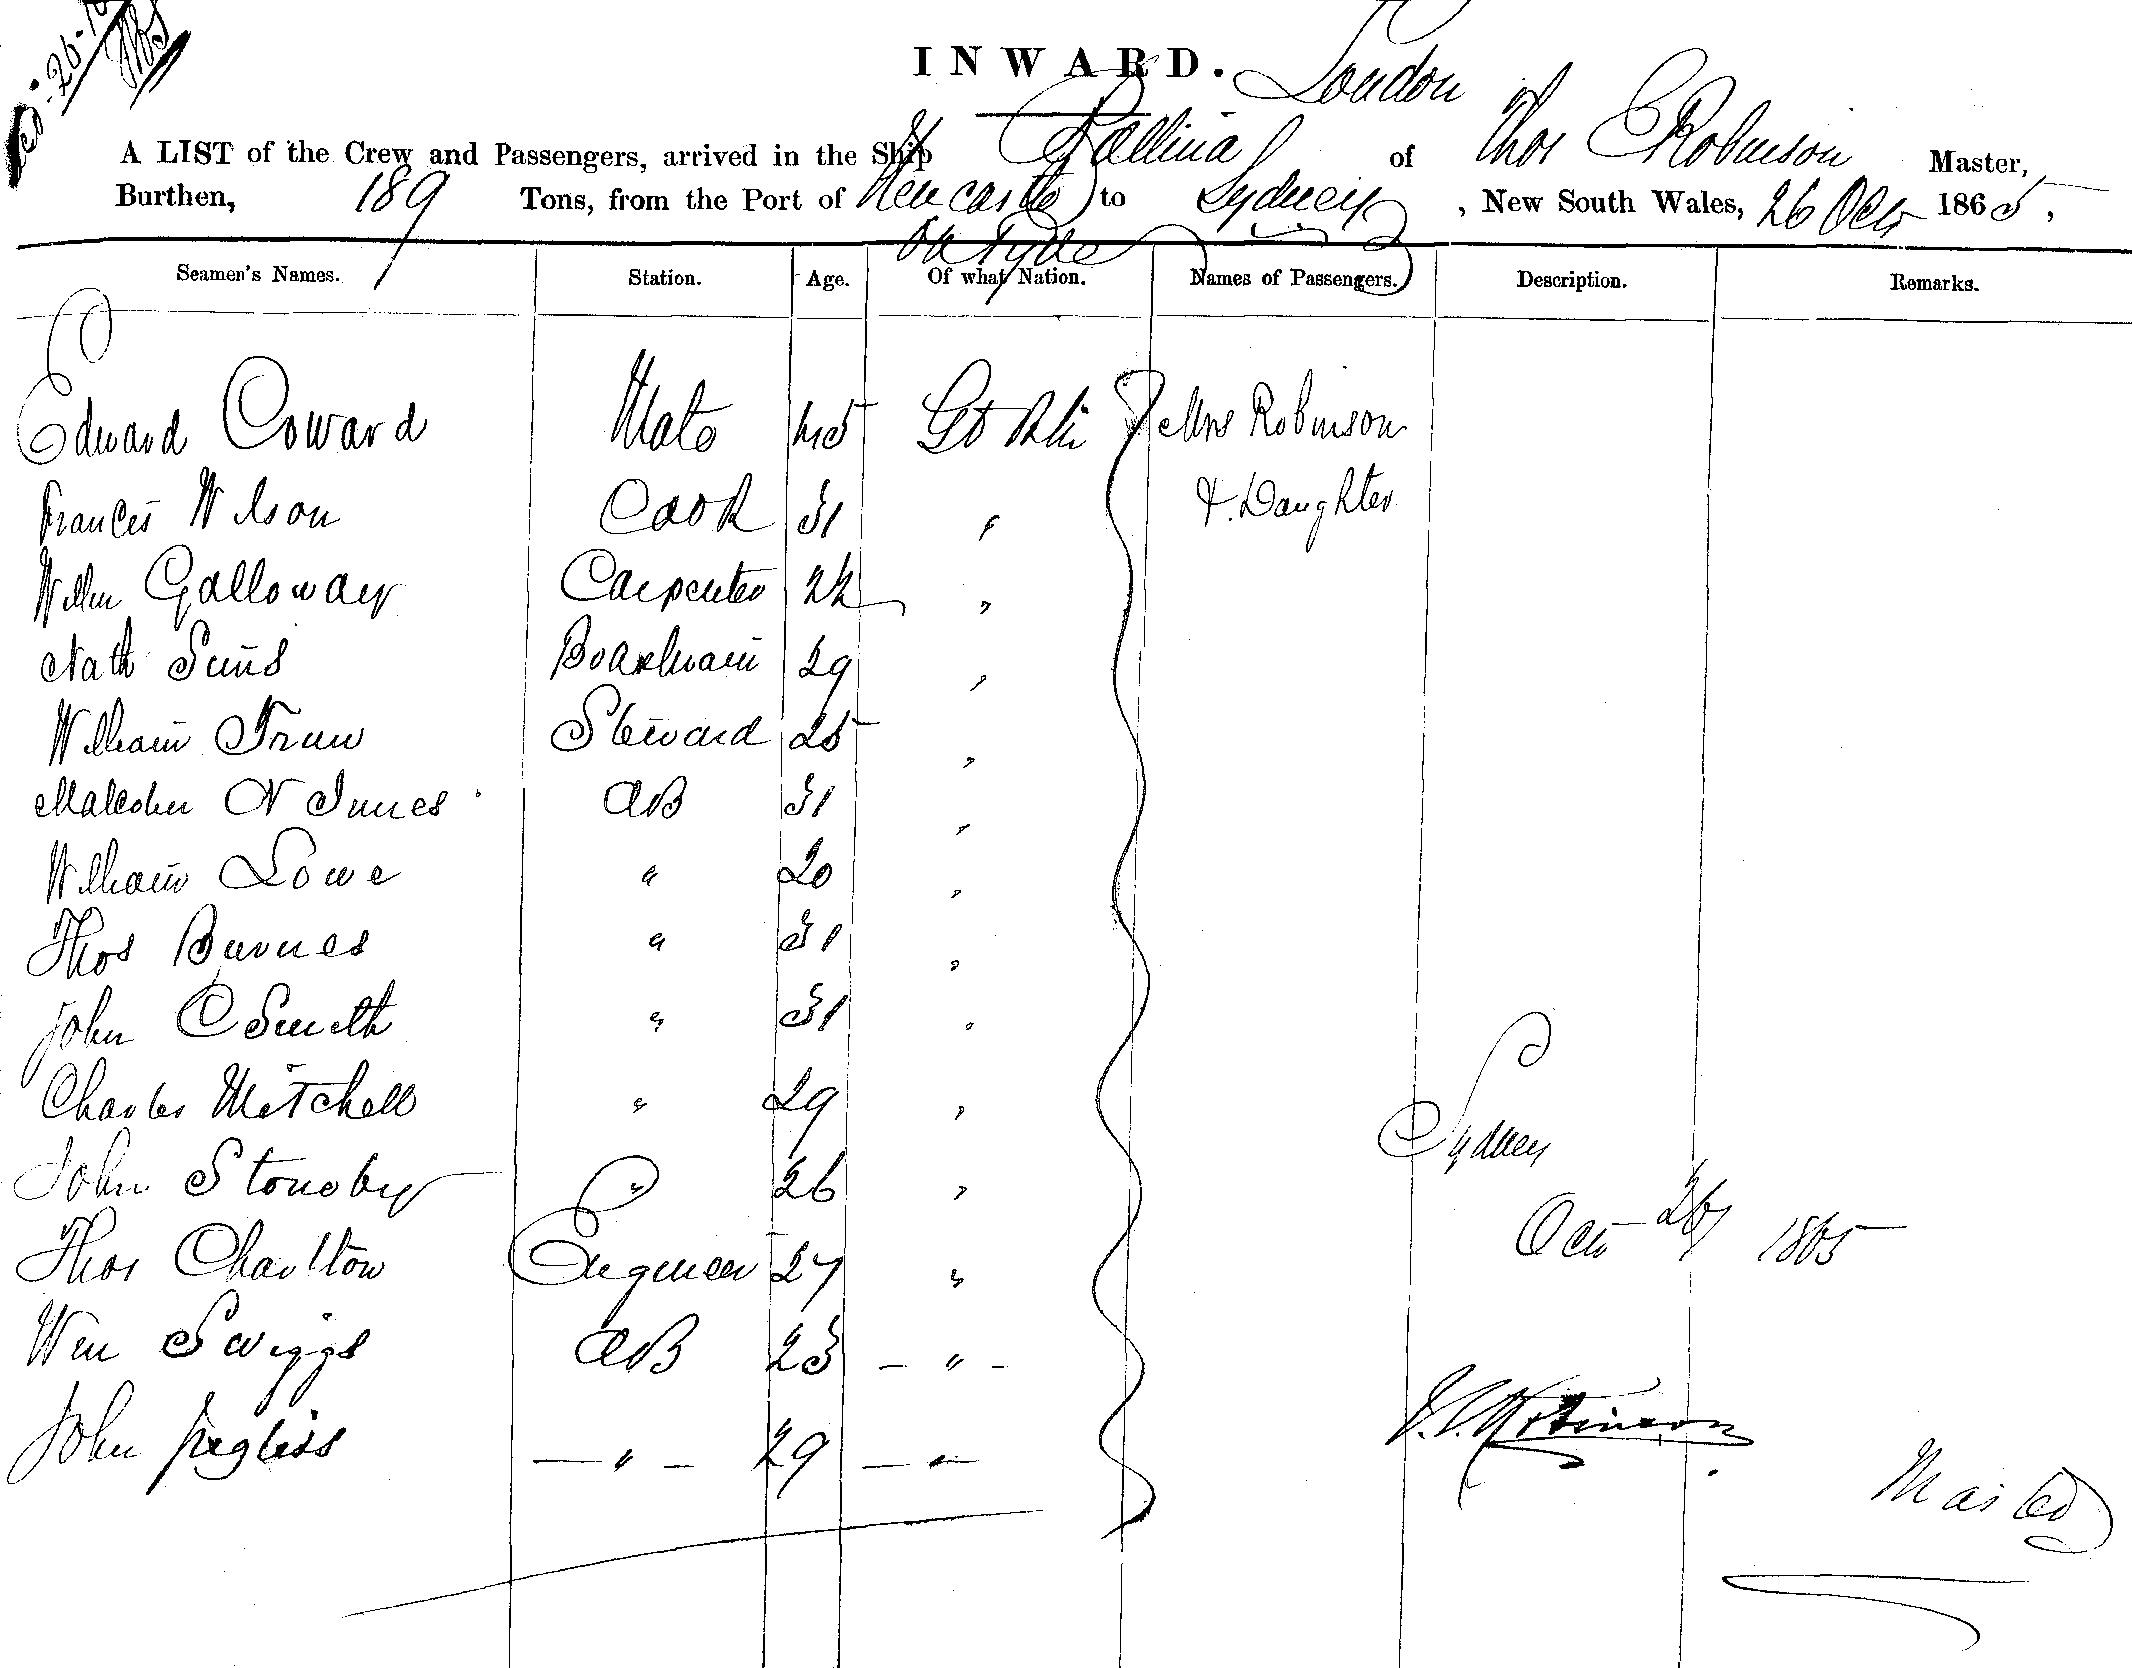 INWARD.
London
A LIST of the Crew and Passengers, arrived in the Ship Ballina of Thos C Robinson Master,
Burthen, 189 Tons, from the Port of Newcastle to Sydney, New South Wales, 26 Octr 1865,
on Tyne
Seamen's Names. Station. Age. Of what Nation. Names of Passengers. Description. Remarks.
Edward Coward Mate 45 Gt Bri Mrs Robinson
Frances Wilson Cook 31 " &. Daughter
Willm Galloway Carpenter 22 "
Nath Sims Boatswain 29 "
William Steward 25 "
Malcolm N Innes AB 31 "
William Lowe " 20 "
Thos Barnes " 31 "
John C Smith " 31 "
Charles Mitchell " 29 "
Sydney
John Stoneby " 26 "
Oct 26/ 1865
Thos Charlton Engineer 27 "
Wm Swiggs AB 23 - " -
T. C. Robinson
John - " - 29 - " -
Master